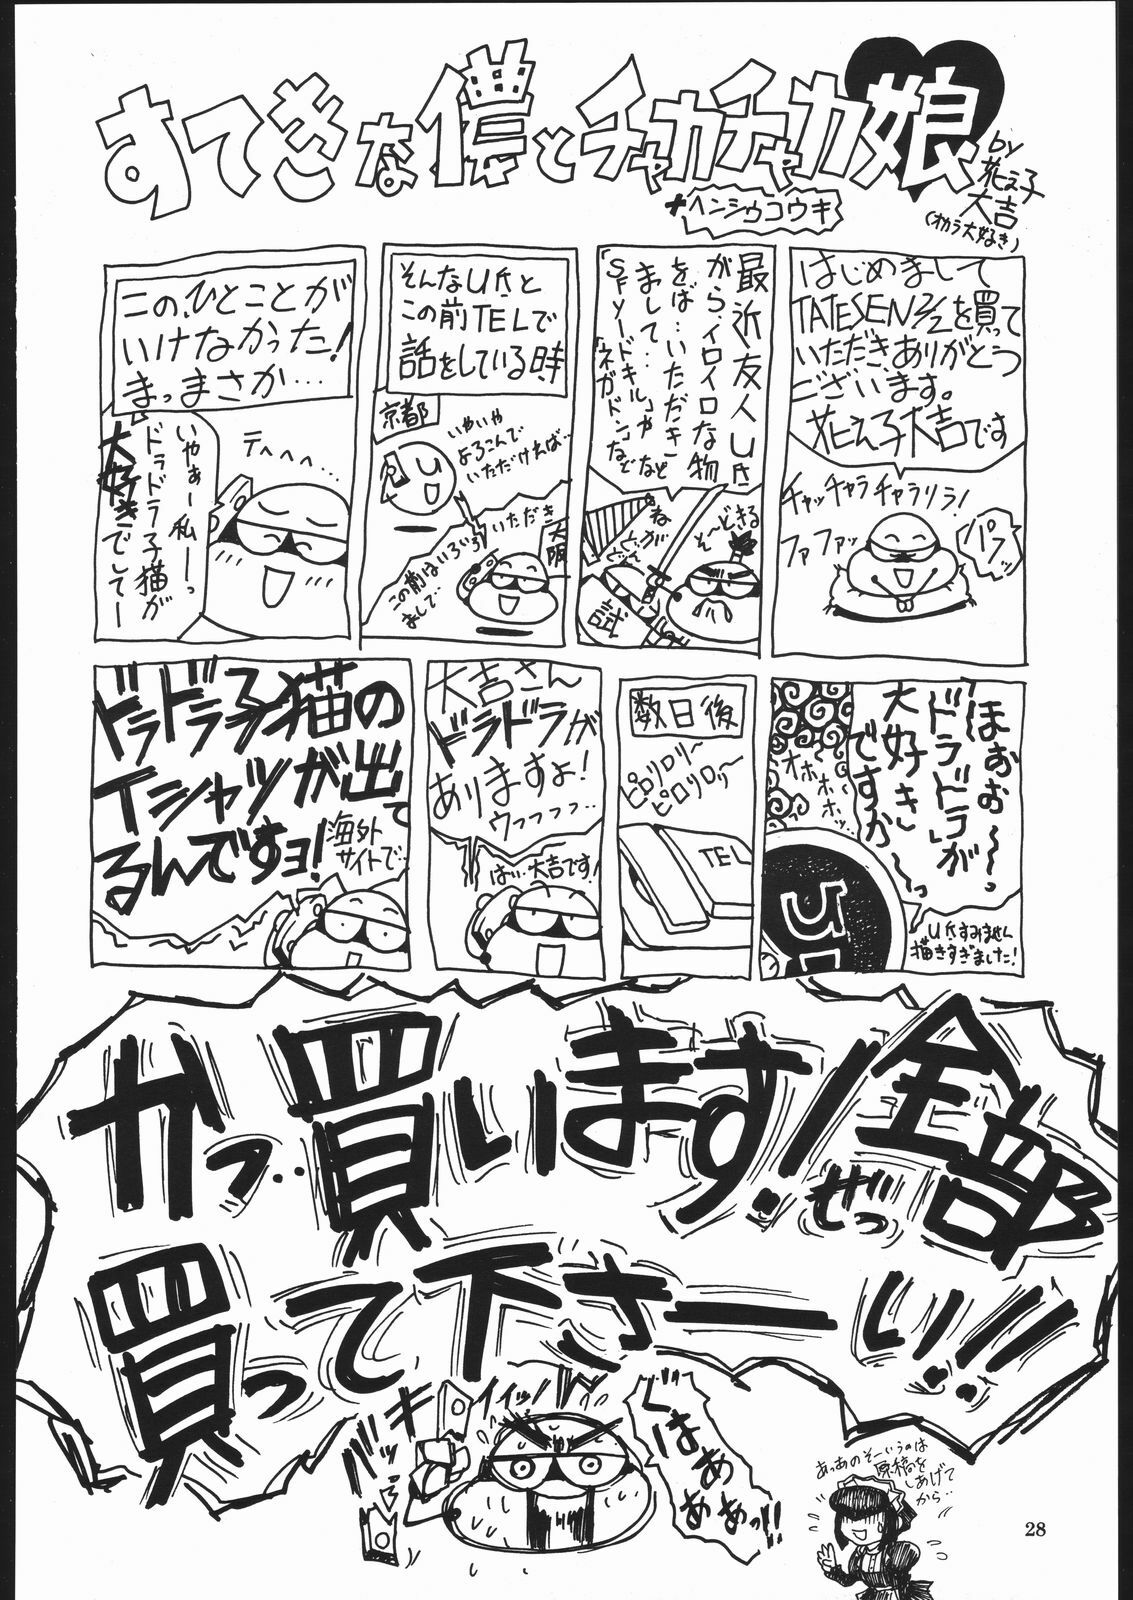 すてきな儂とチャカチャカ娘
+ヘンシウコウキ
by
花え子
大吉
(オカラ大好き)
はじめまして
TATESEN2/2を買って
いただきありがとう
ございます。
花え子大吉です
チャッチャラチャラリラ!
ファファッ
パフッ
最近友人U氏
がらイロイロな物
をば…いただき
まして…
「SFソードキル」や
「ネガドン」などなど
そ〜どきる
ねがどん
試
そんなU氏と
この前TELで
話をしている時、
京都
U
いやいや
よろこんで
いただければ…
大阪
この前はいろいろいただき
まして…
この、ひとことが
いけなかった!
まっまさか…
テヘヘ…
いやぁー私ーっ
ドラドラ子猫が
大好きでしてー
ほぉお〜っ
「ドラドラ」が
大好き
ですか〜っ
オホホホホッ…
U氏すみません
描きすぎました!
数日後
ピロリロリ〜
ピロリロリ〜
TEL
大吉さん
ドラドラが
ありますよ!
ウフフフフ…
はい…大吉です!
ドラドラ子猫の
Tシャツが出て
るんですョ!
海外
サイトで…
かっ…買います!全部
ぜっ
買って下さーい!!
イイッ!
バキッ
ぐはぁぁぁぁっ!!
あっあのそーいうのは
原稿を
しあげて
から…
28